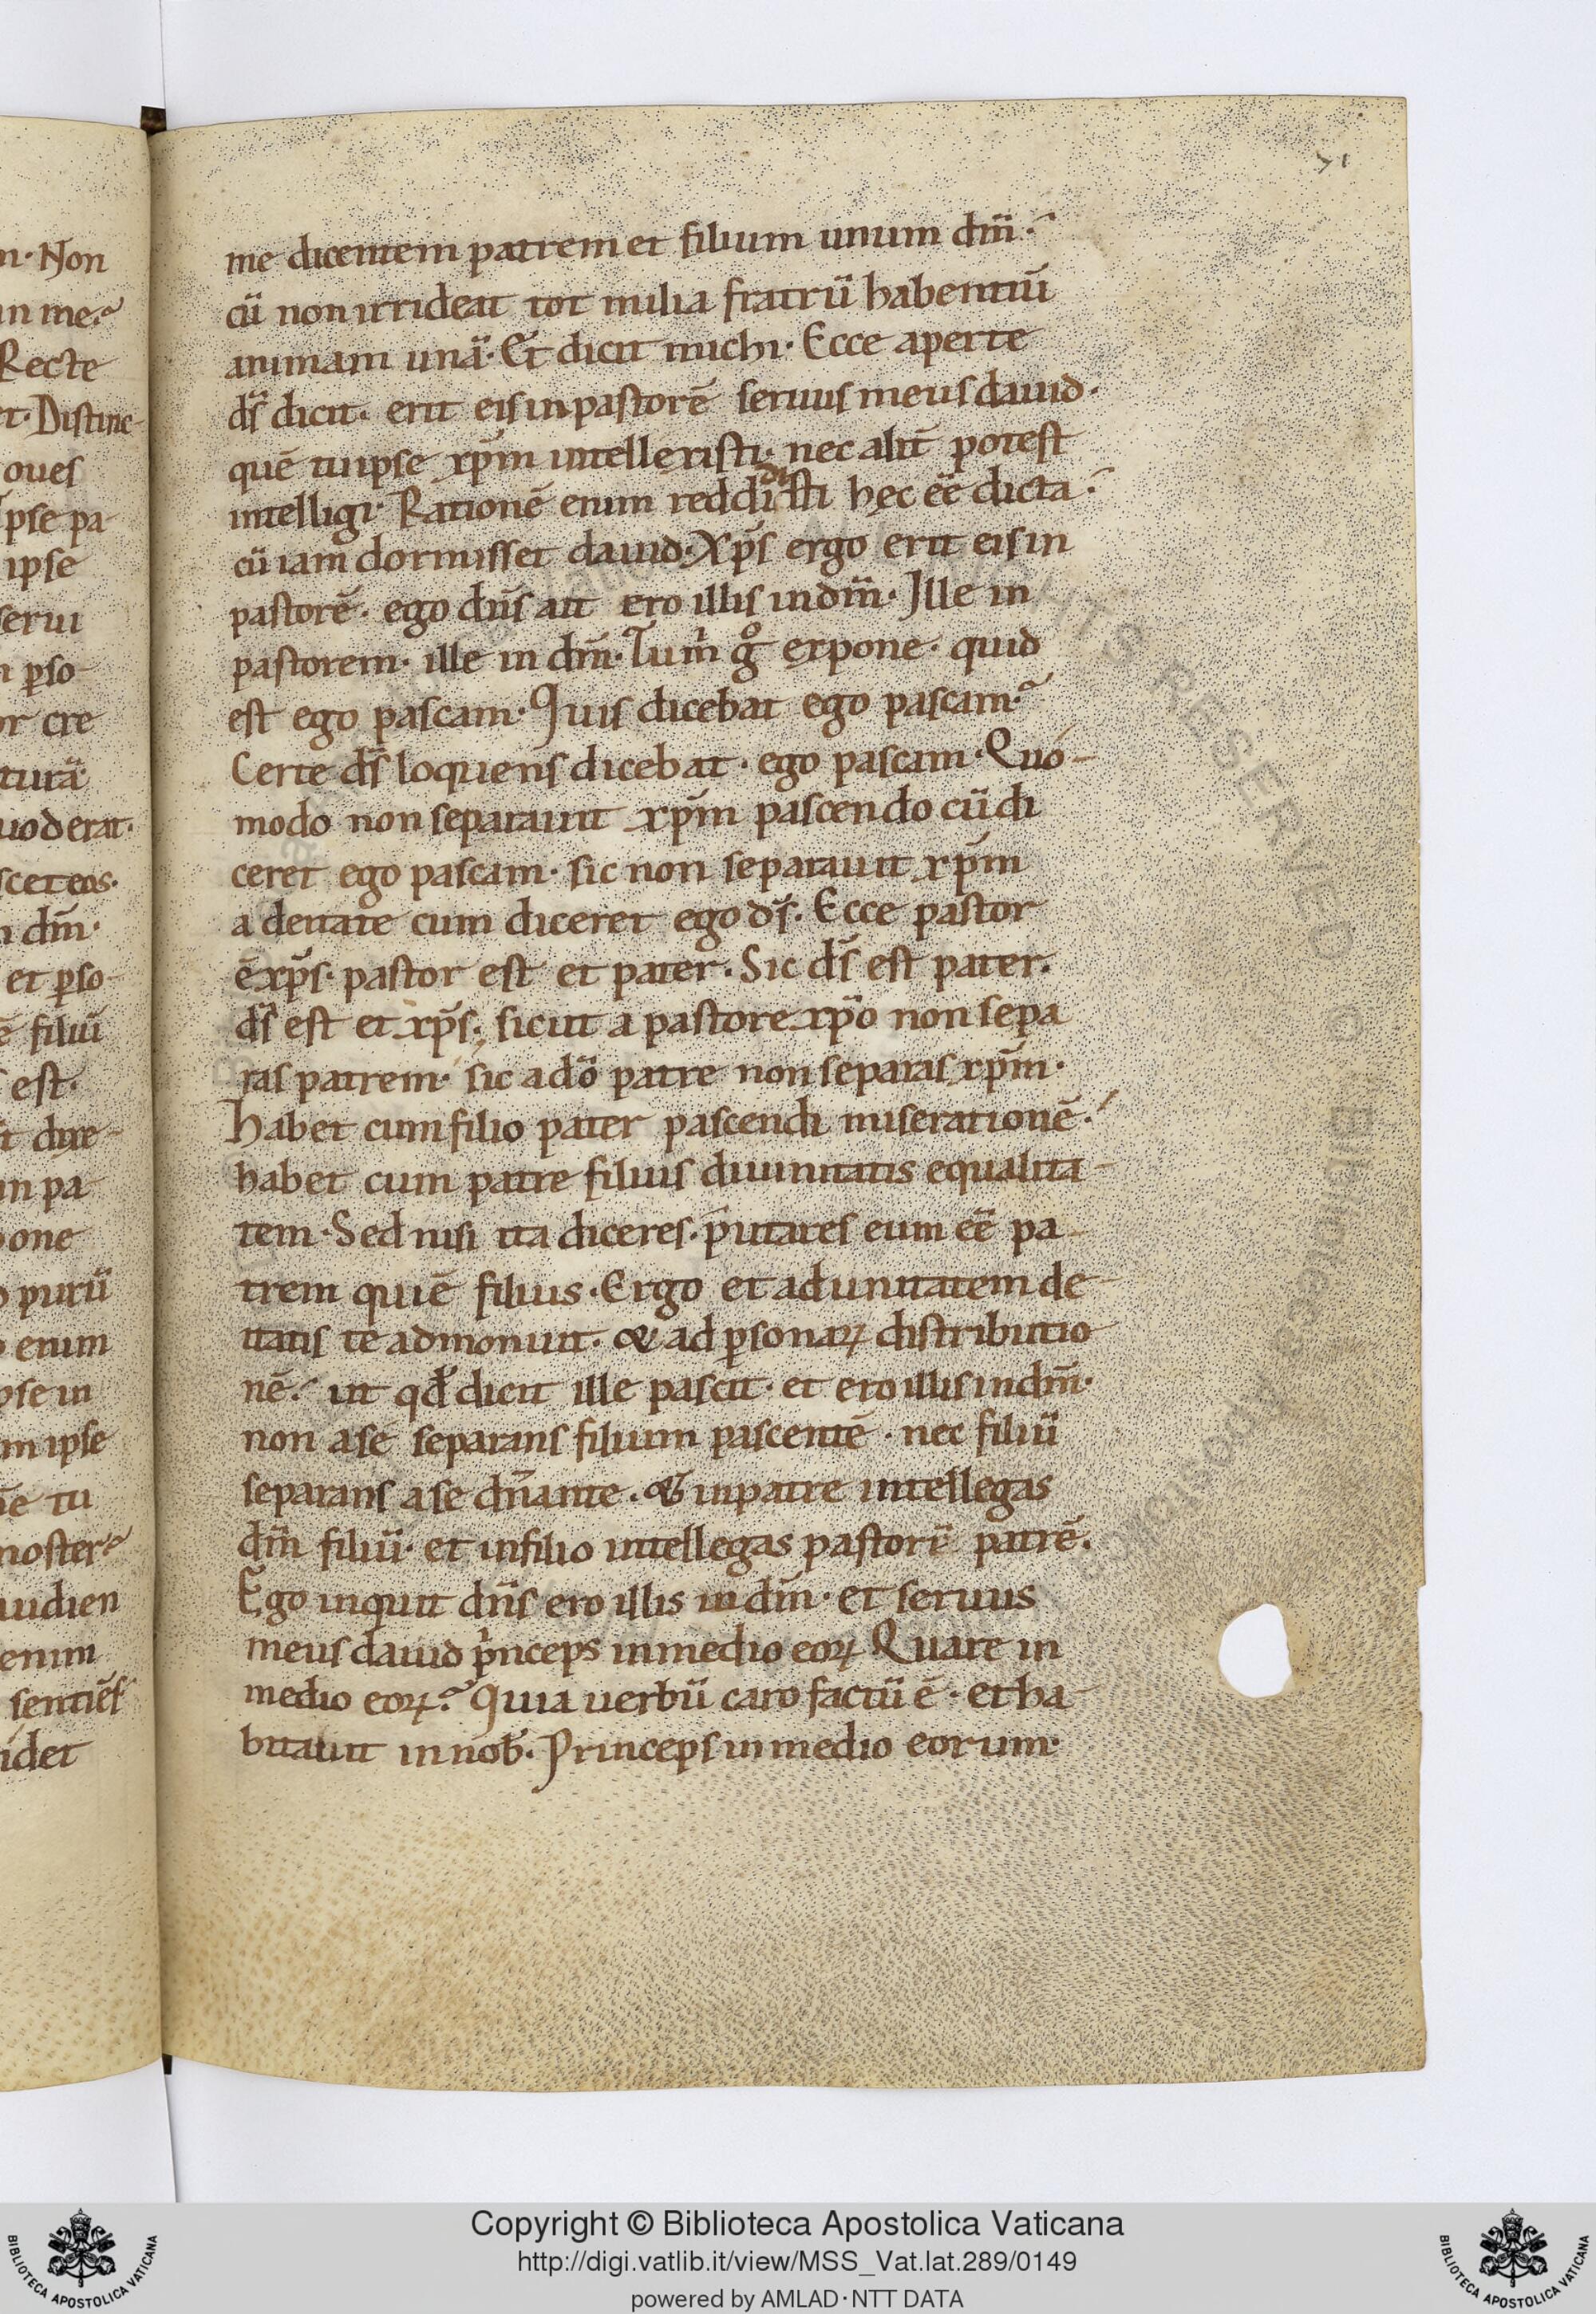 71
n· Non
in me?
Recte
t· Distinc-
oues
pse pa-
ipse
serui
n pso-
or cre
turā
uod erat·
scet eos·
n dm̄·
et pso-
ē filiū
est·
t dixe-
in pa-
pone
o purū
o enim
pse in
m ipse
ē tu
noster?
udien
enim
sentiēs
idet
me dicentem patrem et filium unum dm̄·
cū non irrideat tot milia fratrū habentiū
animam unā· Et dicit michi· Ecce aperte
ds̄ dicit· erit eis in pastorē seruus meus dauid·
quē tu ipse xp̄m intellexisti· nec alit̄ potest
intelligi· Rationē enim reddidisti hęc eē dicta·
cū iam dormisset dauid· Xp̄s ergo erit eis in
pastorē· ego dn̄s ait ero illis in dm̄· Ille in
pastorem· ille in dm̄· Tu m̄ gͦ expone· quid
est ego pascam· Quis dicebat ego pascam?
Certe ds̄ loquens dicebat· ego pascam· Quo-
modo non separauit xp̄m pascendo cū di
ceret ego pascam· sic non separauit xp̄m
a deitate cum diceret ego ds̄· Ecce pastor
ē xp̄s· pastor est et pater· Sic ds̄ est pater·
ds̄ est et xp̄s· sicut a pastore xp̄o non sepa
ras patrem· sic a dō patre non separas xp̄m·
Habet cum filio pater pascendi miserationē·
habet cum patre filius diuinitatis equalita-
tem· Sed nisi ita diceres· putares eum eē pa-
trem quē filius· Ergo et ad unitatem de-
itatis te admonuit· & ad psonaꝝ distributio-
nē· ut qd̄ dicit ille pascit· et ero illis in dm̄·
non a se separans filium pascentē· nec filiū
separans a se dn̄ante· & in patre intellegas
dm̄ filiū· et in filio intellegas pastorē patrē·
Ego inquit dn̄s ero illis in dm̄· et seruus
meus dauid pͥnceps in medio eoꝝ Quare in
medio eoꝝ? Quia uerbū caro factū ē· et ha-
bitauit in nob̄· Princeps in medio eorum·
Copyright © Biblioteca Apostolica Vaticana
http://digi.vatlib.it/view/MSS_Vat.lat.289/0149
powered by AMLAD·NTT DATA
BIBLIOTECA APOSTOLICA VATICANA
BIBLIOTECA APOSTOLICA VATICANA